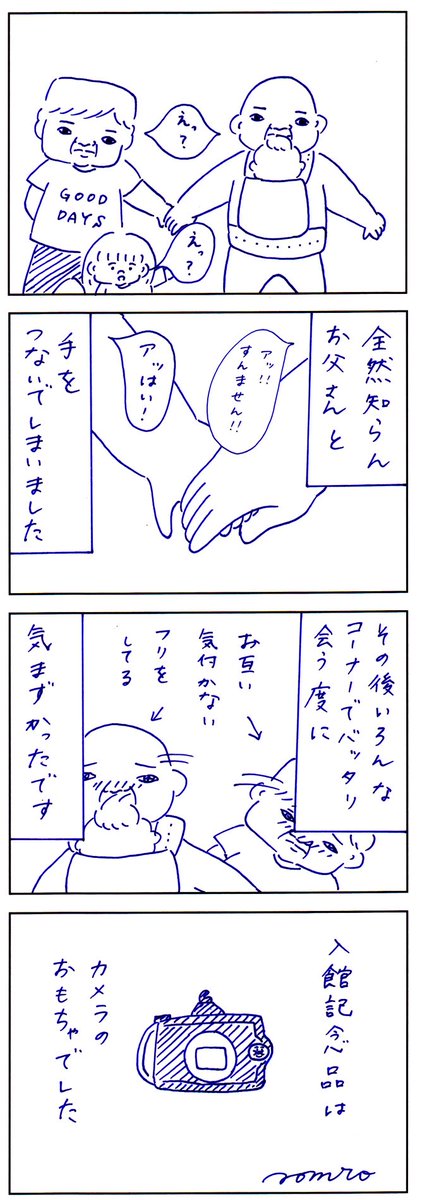 えっ？
GOOD
DAYS
えっ？
全然知らん
お父さんと
アッ!!
すんません!!
アッはい！
手を
つないでしまいました
その後いろんな
コーナーでバッタリ
会う度に
お互い
気付かない
フリを
してる
気まずかったです
入館記念品は
カメラの
おもちゃでした
nomro